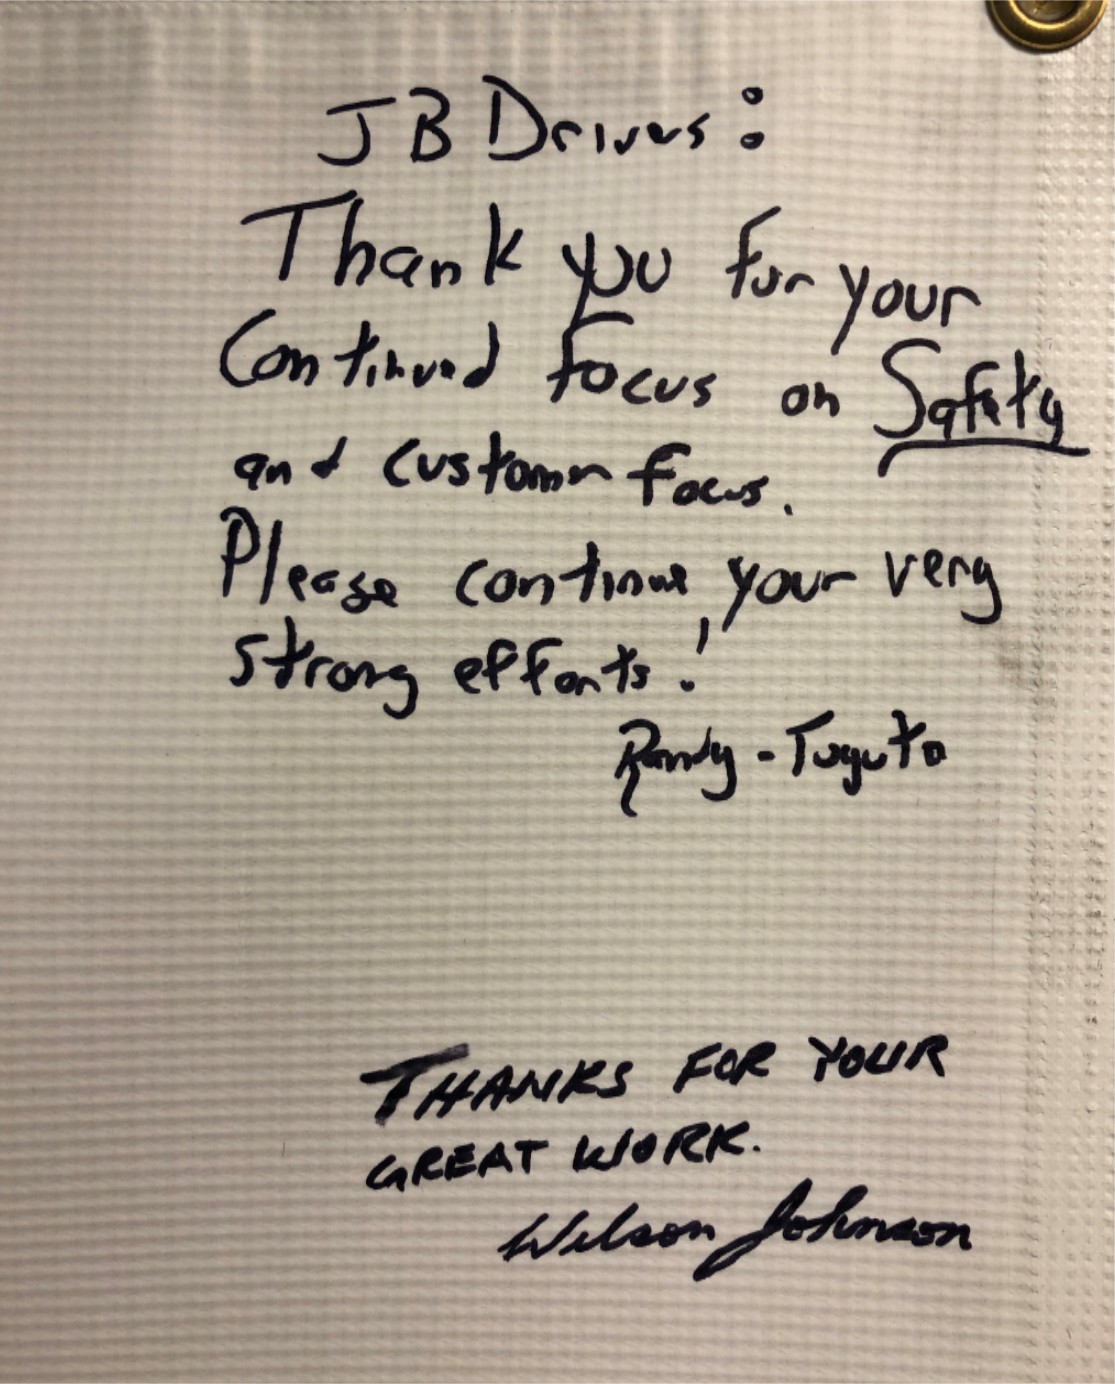 JB Drivers:
Thank you for your
Continued Focus on Safety
and customer focus.
Please continue your very
strong efforts!
Randy - Toyota
THANKS FOR YOUR
GREAT WORK.
Wilson Johnson